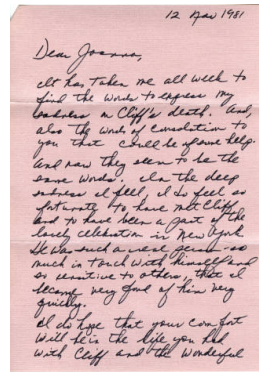 12 Nov 1981
Dear Joanna,
It has taken me all week to
find the words to express my
sadness on Cliff's death. And,
also the words of consolation to
you that could be of some help.
And now they seem to be the
same words. In the deep
sadness I feel, I do feel so
fortunate to have met Cliff
and to have been a part of the
lovely celebration in New York.
He was such a real person so
much in touch with himself and
so sensitive to others, that I
became very fond of him very
quickly.
I do hope that your comfort
will be in the life you had
with Cliff and the wonderful